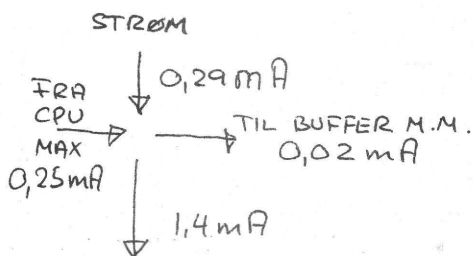 STRØM
0,29mA
FRA
CPU
MAX
0,25mA
TIL BUFFER M.M.
0,02mA
1,4mA